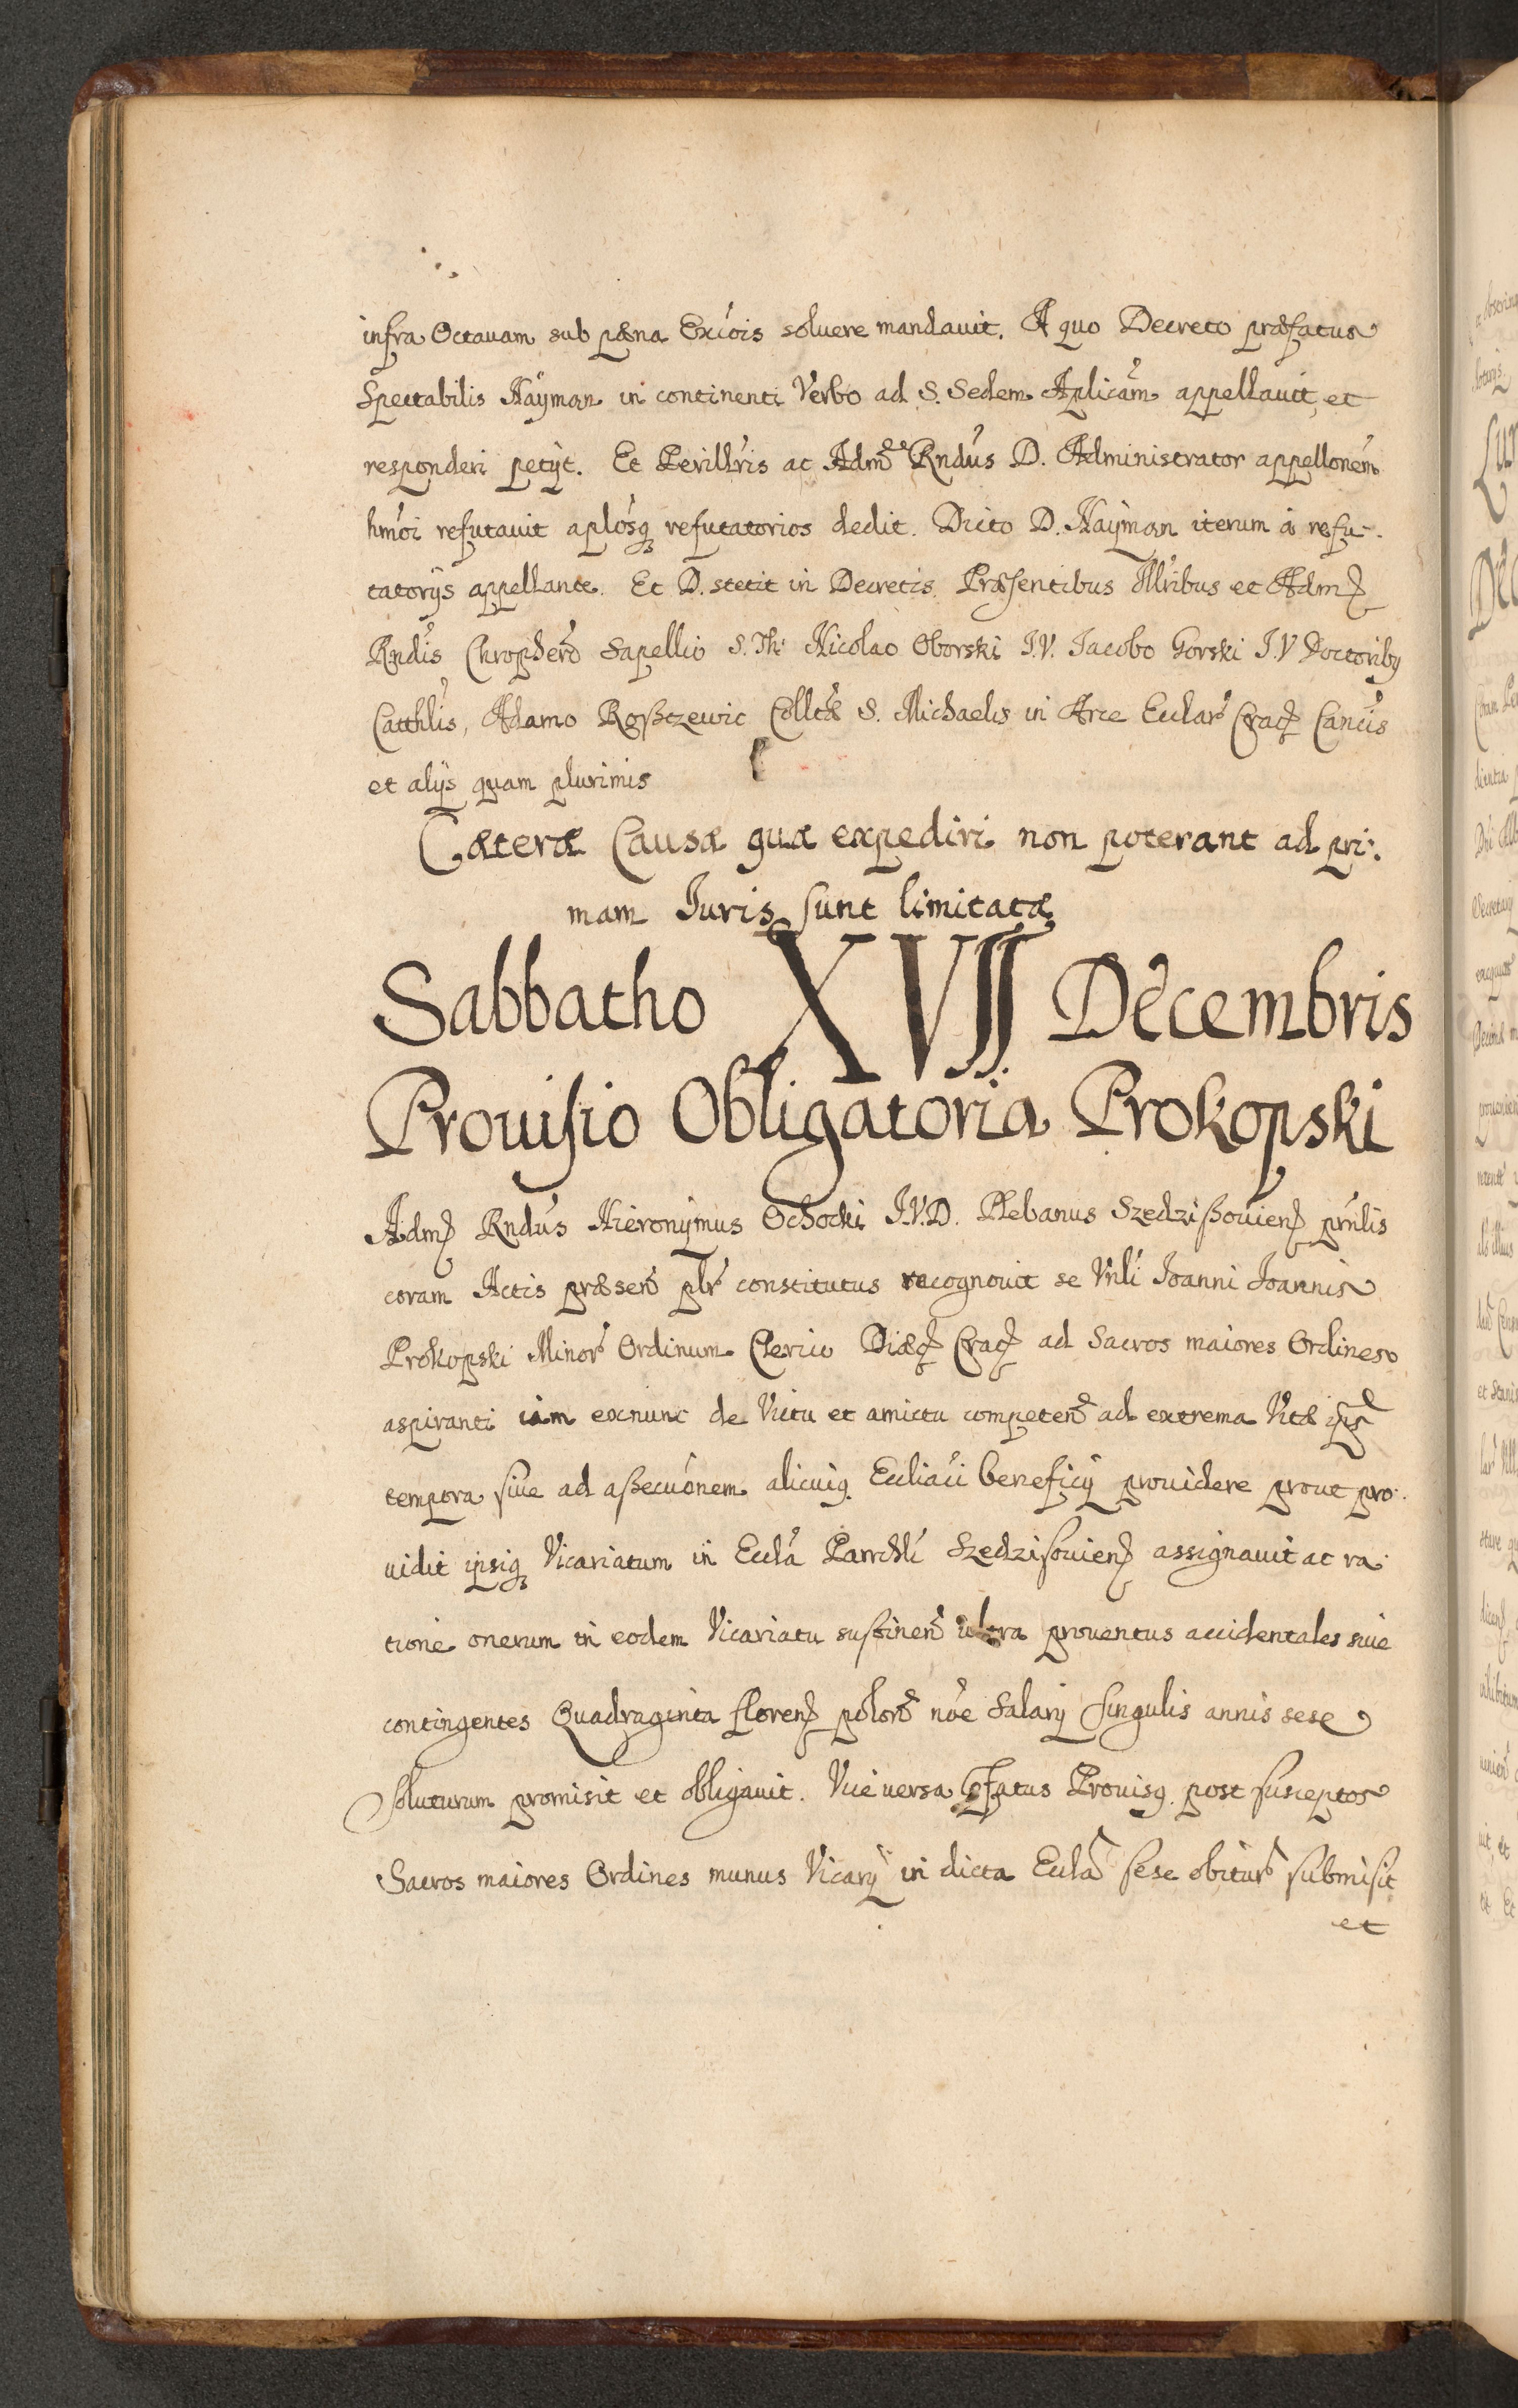 infra Octauam sub pæna Exc̃ois soluere mandauit. A quo Decreto præfatus
Spectabilis Hayman in continenti Verbo ad S. Sedem Aplicam̃ appellauit, et
responderi petÿt. Et Perillr̃is ac Adm̃ Rndũs D. Administrator appellonem̃
hmõi refutauit aplosq̃ refutatorios dedit. Dicto D. Hayman iterum à refu-
tatorÿs appellante. Et D. stetit in Decretis. Præsentibus Illr̃ibus et Adm
Rndis̃ Chrophero Sapellio S. Th. Nicolao Oborski I.V. Iacobo Gorski I.V Doctoribq
Catthlis̃, Adamo Roßczewic Colltæ S. Michaelis in Arce Ecclar̃ Crac Cancis̃
et alÿs quam plurimis
Cæteræ Causæ quæ expediri non poterant ad pri:
mam Iuris sunt limitatæ
Sabbatho XVII Decembris
Prouisio Obligatoria Prokopski
Adm Rndũs Hieronÿmus Ochocki I.V.D. Plebanus Szedzißouien prñlis
coram Actis præsen̄ plr̃ constitutus recognouit se Vnli Ioanni Ioannis
Prokopski Minor̃ Ordinum Clerico Diæc Crac ad Sacros maiores Ordines
aspiranti iam exnunc de Victu et amictu competen̄ ad extrema Vitæ ips
tempora siue ad aßecuõnem alicuiq Eccliaci beneficÿ prouidere prout pro:
uidit ipsiq Vicariatum in Eccla Parrchli Szedzisouien assignauit ac ra:
tione onerum in eodem Vicariatu sustinen̄ ultra prouentus accidentales siue
contingentes Quadraginta floren polon̄ nõe Salarÿ singulis annis sese
soluturum promisit et obligauit. Vice uersa pfatus Prouisq post susceptos
Sacros maiores Ordines munus Vicarÿ in dicta Eccla sese obitur̃ submisit
et